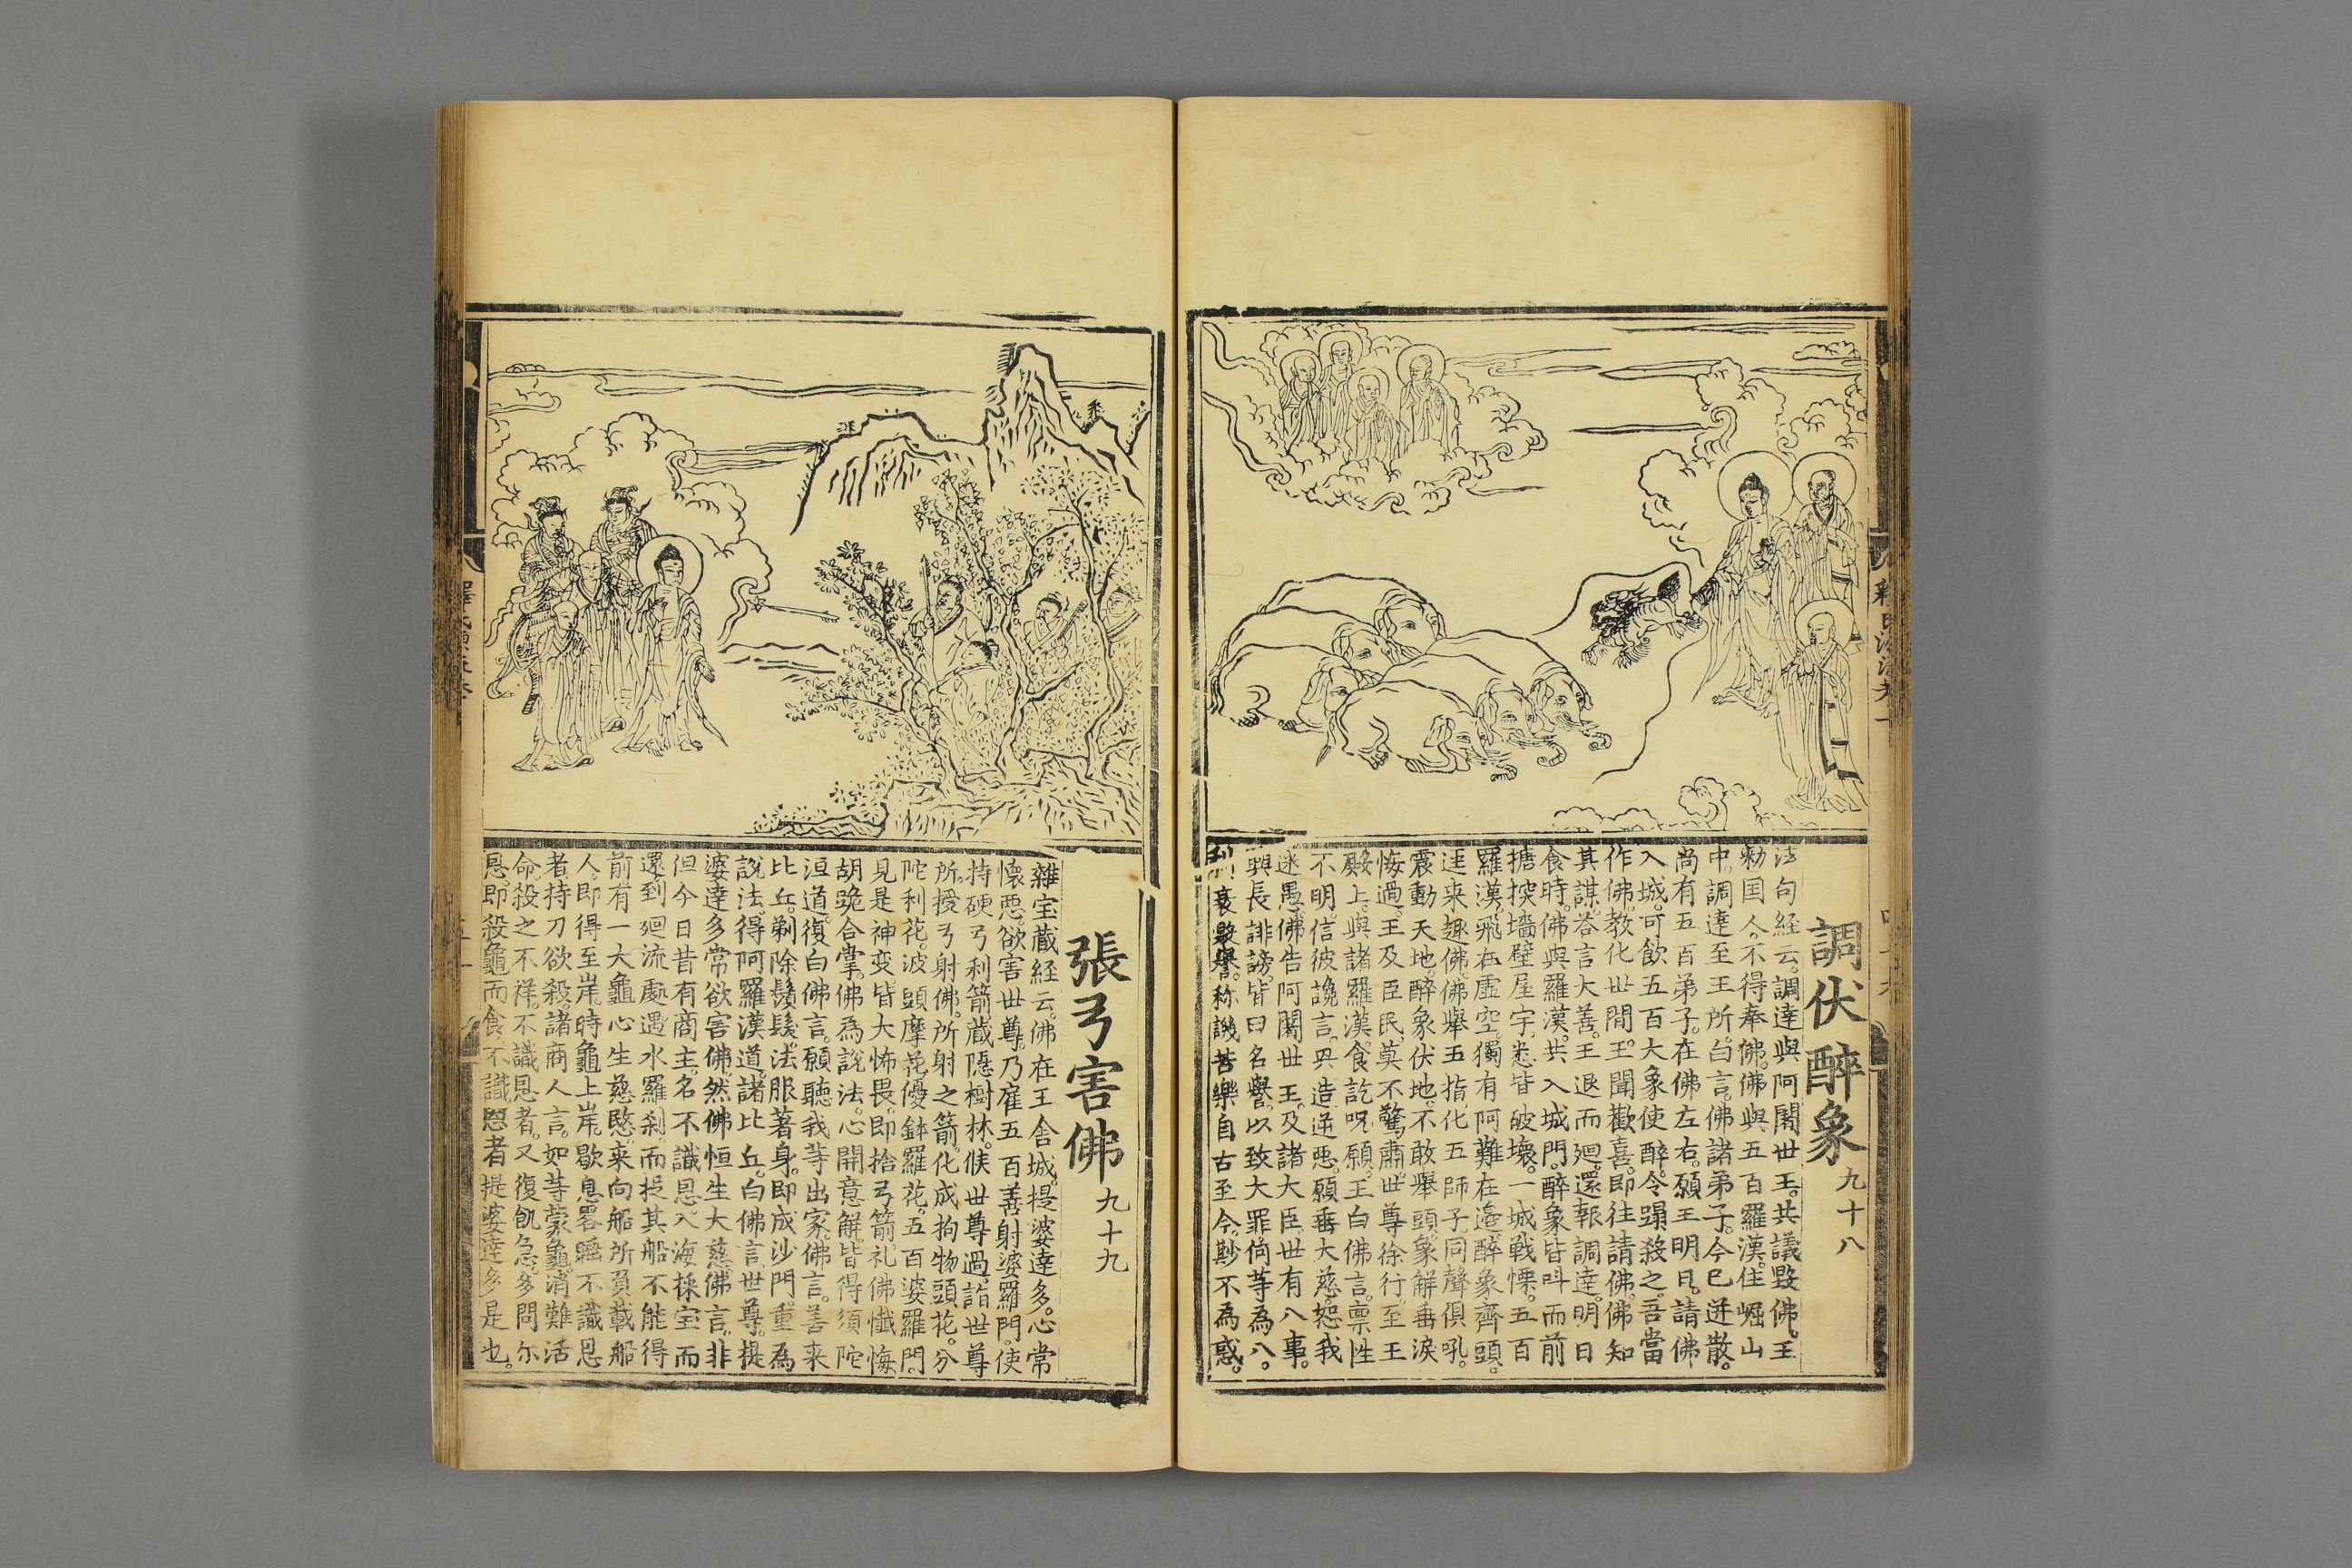 調伏醉象九十八
法句経云。調達與阿闍世王。共議毀佛。王
勑国人。不得奉佛。佛與五百羅漢。住崛山
中。調達至王所。白言。佛諸弟子。今已迸散。
尚有五百弟子。在佛左右。願王明日。請佛
入城。可飲五百大象使醉。令蹋殺之。吾當
作佛。教化世間。王聞歡喜。即往請佛。佛知
其謀。荅言大善。王退而廻。還報調達。明日
食時。佛與羅漢。共入城門。醉象皆吽而前
搪揬墻壁屋宇。悉皆破壞。一城戰慄。五百
羅漢。飛在虛空。獨有阿難在邉。醉象齊頭。
逕来趣佛。佛舉五指。化五師子。同聲俱吼。
震動天地。醉象伏地。不敢舉頭。象解垂淚
悔過。王及臣民。莫不驚肅。世尊徐行。至王
殿上。與諸羅漢。食訖呪願。王白佛言。禀性
不明。信彼讒言。興造逆悪。願垂大慈。恕我
迷愚。佛告阿闍世王。及諸大臣。世有八事。
興長誹謗。皆曰名譽。以致大罪。何等為八。
利衰毀譽。称譏苦樂。自古至今。尠不為惑。
張弓害佛九十九
雜宝藏経云。佛在王舎城。提婆達多。心常
懐悪。欲害世尊。乃雇五百善射婆羅門。使
持硬弓利箭。藏隱樹林。候世尊過。詣世尊
所。援弓射佛。所射之箭。化成拘物頭花。分
陀利花。波頭摩花。優鉢羅花。五百婆羅門。
見是神变。皆大怖畏。即捨弓箭。礼佛懺悔
胡跪合掌。佛為說法。心開意解。皆得須陀
洹道。復白佛言。願聽我等出家。佛言。善来
比丘。剃除鬚髮。法服著身。即成沙門。重為
說法。得阿羅漢道。諸比丘。白佛言。世尊。提
婆達多常欲害佛。然佛恒生大慈。佛言。非
但今日。昔有商主。名不識恩。入海採宝。而
還到廻流處。遇水羅刹。而捉其船。不能得
前。有一大龜。心生慈愍。来向船所。負載船
人。即得至岸。時龜上岸。歇息畧睡。不識恩
者。持刀欲殺。諸商人言。如等蒙龜。消難活
命。殺之不祥。不識恩者。又復飢急。多問尓
恩。即殺龜而食。不識恩者。提婆達多是也。